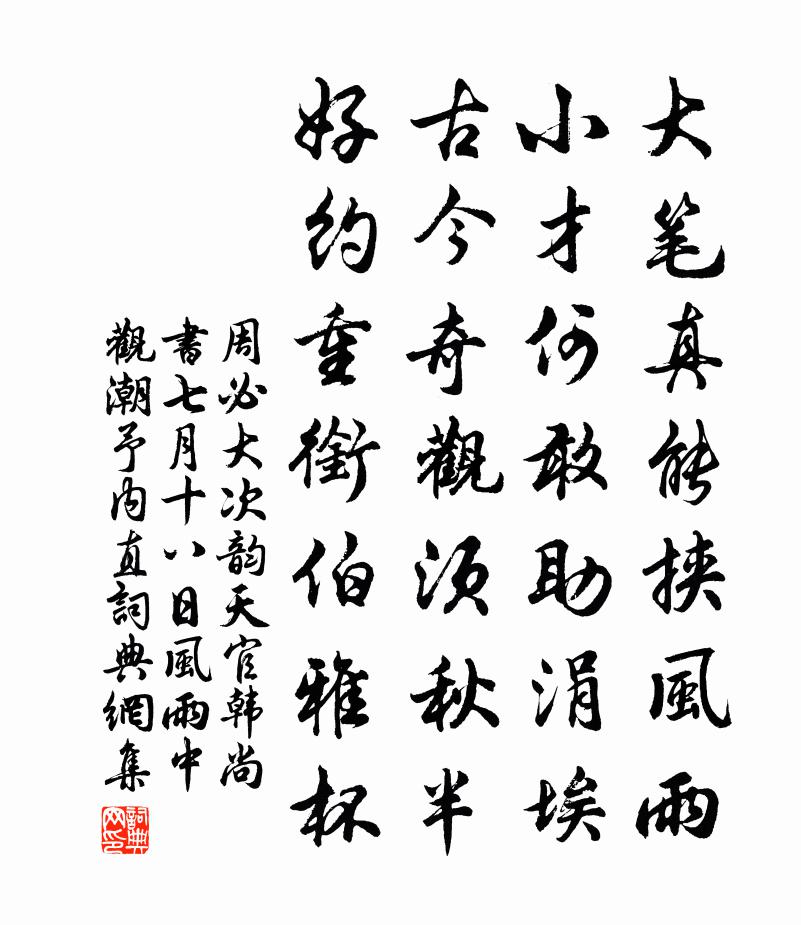 大笔真能挟風雨
小才何敢助涓埃
古今奇觀須秋半
好约重銜伯雅杯
周必大次韵天官韩尚
書七月十八日風雨中
觀潮予内直詞典網集
詞典网印